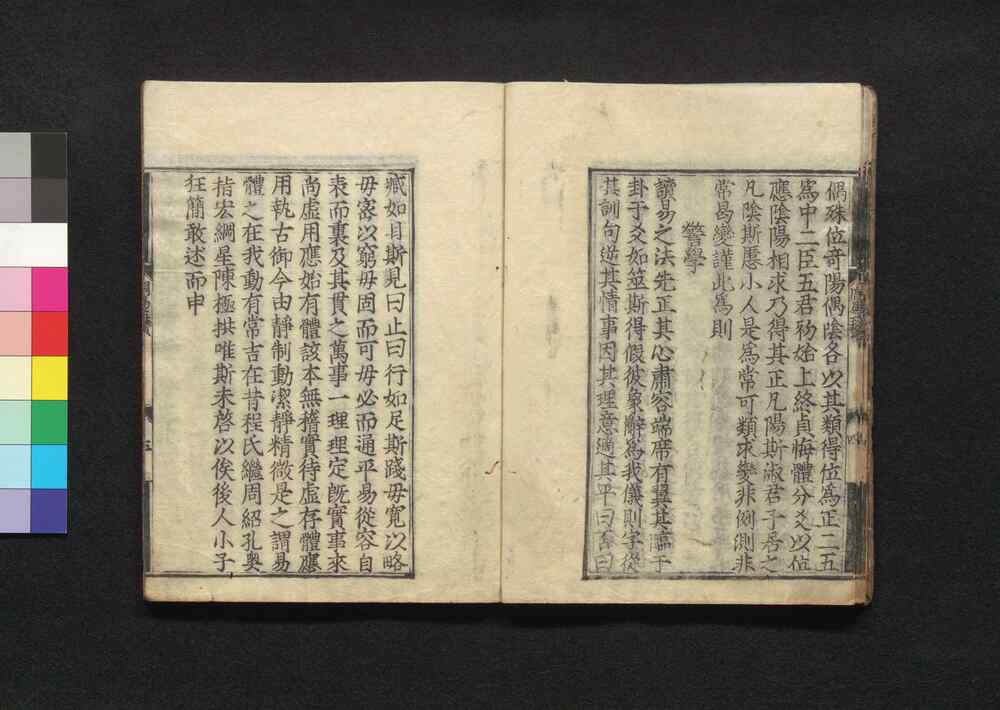 偶殊位奇陽偶陰各以其類得位爲正二五
爲中二臣五君初始上終貞悔體分爻以位
應陰陽相求乃得其正凡陽斯淑君子居之
凡陰斯慝小人是爲常可類求變非例測非
常曷變謹此爲則
警學
讀易之法先正其心肅容端席有翼其臨于
卦于爻如筮斯得假彼象辭爲我儀則字從
其訓句逆其情事因其理意適其平曰否曰
臧如目斯見曰止曰行如足斯踐毋寬以略
毋宻以窮毋固而可毋必而通平易從容自
表而裏及其貫之萬事一理理定旣實事來
尚虛用應始有體該本無稽實待虛存體應
用執古御今由靜制動潔靜精微是之謂易
體之在我動有常吉在昔程氏繼周紹孔奧
指宏綱星陳極拱唯斯未啓以俟後人小子
狂簡敢述而申